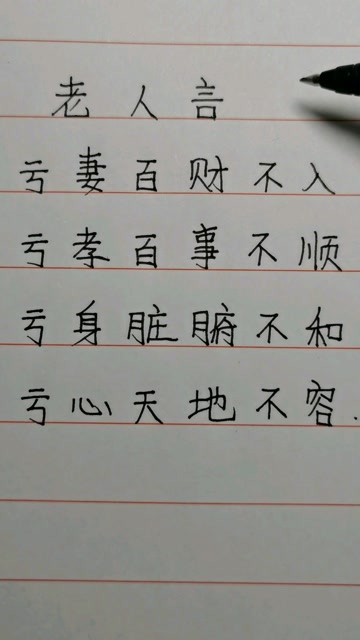 老人言
亏妻百财不入
亏孝百事不顺
亏身脏腑不和
亏心天地不容.